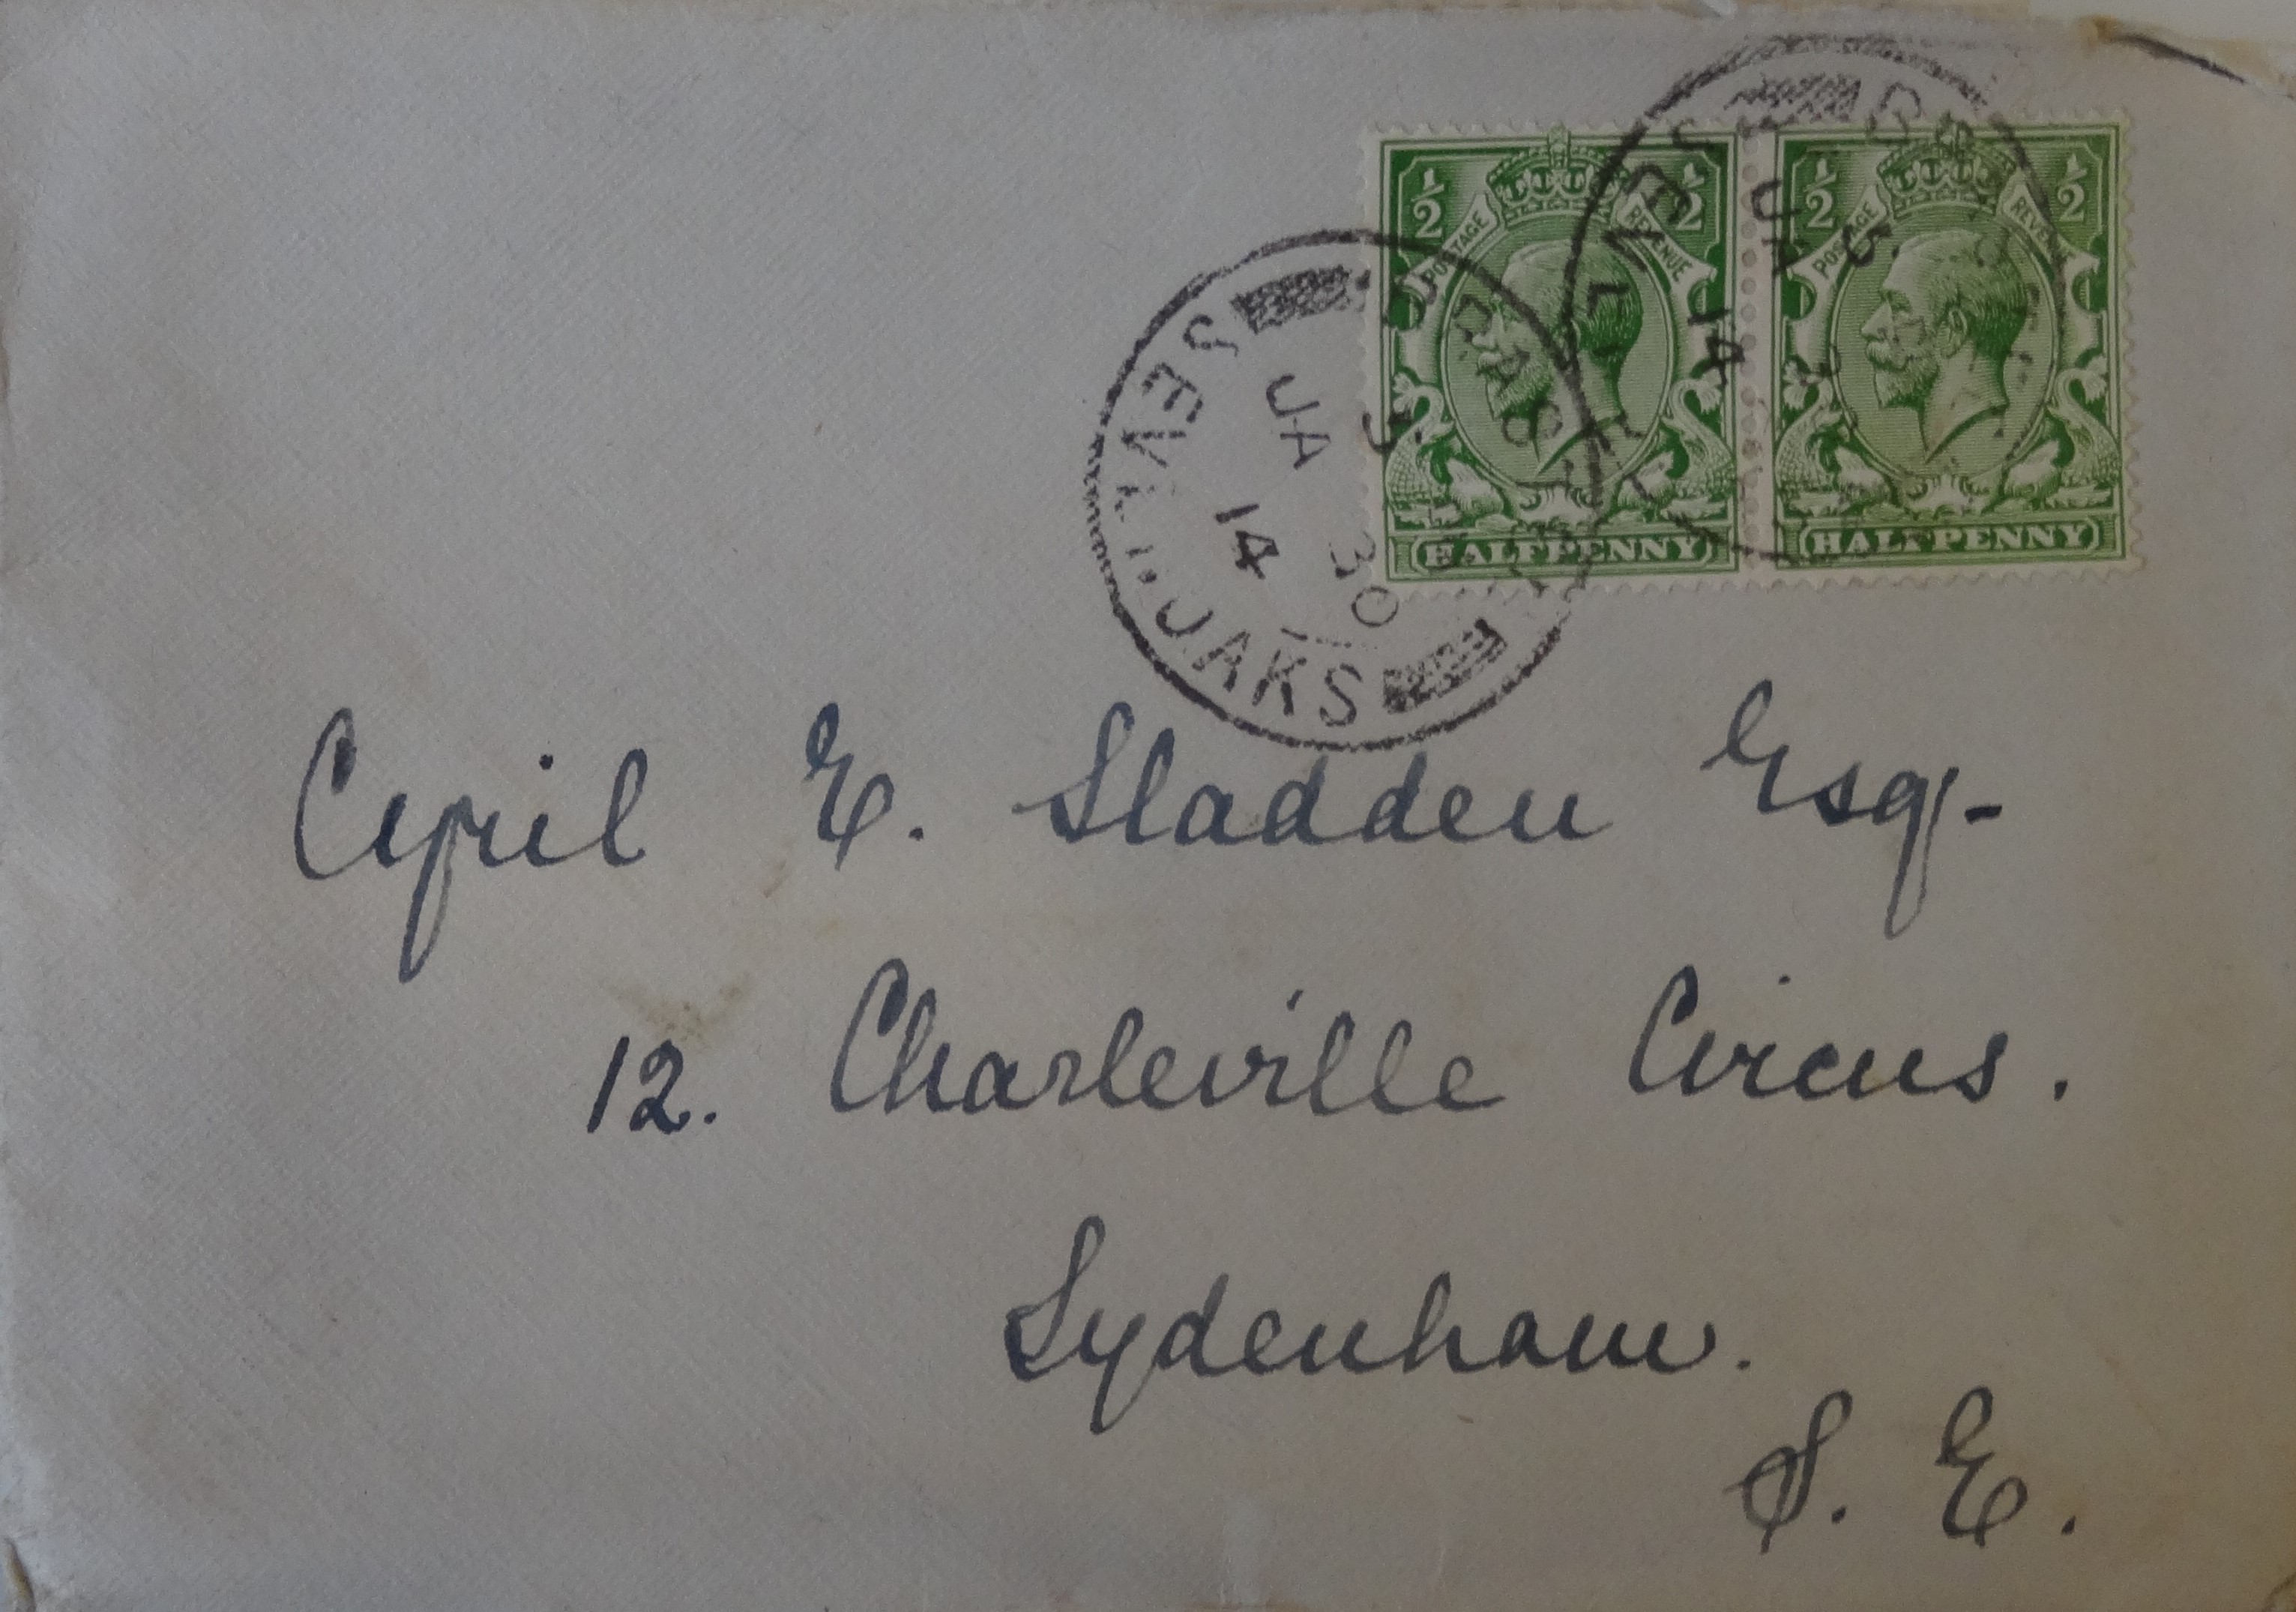 ½ ½ ½ ½
POSTAGE REVENUE POSTAGE REVENUE
HALFPENNY HALFPENNY
JA 5
14
JA 5
30
14
Cyril E. Sladden Esq-
12. Charleville Circus.
Sydenham.
S. E.